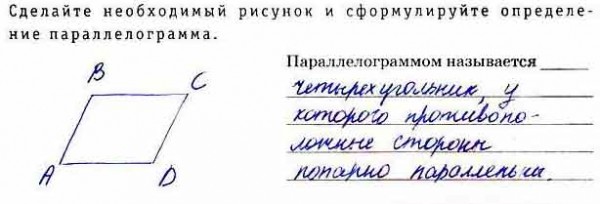 Сделайте необходимый рисунок и сформулируйте определе-
ние параллелограмма.
Параллелограммом называется
четырехугольник, у
которого противопо-
ложные стороны
попарно параллельны.
B C
A D